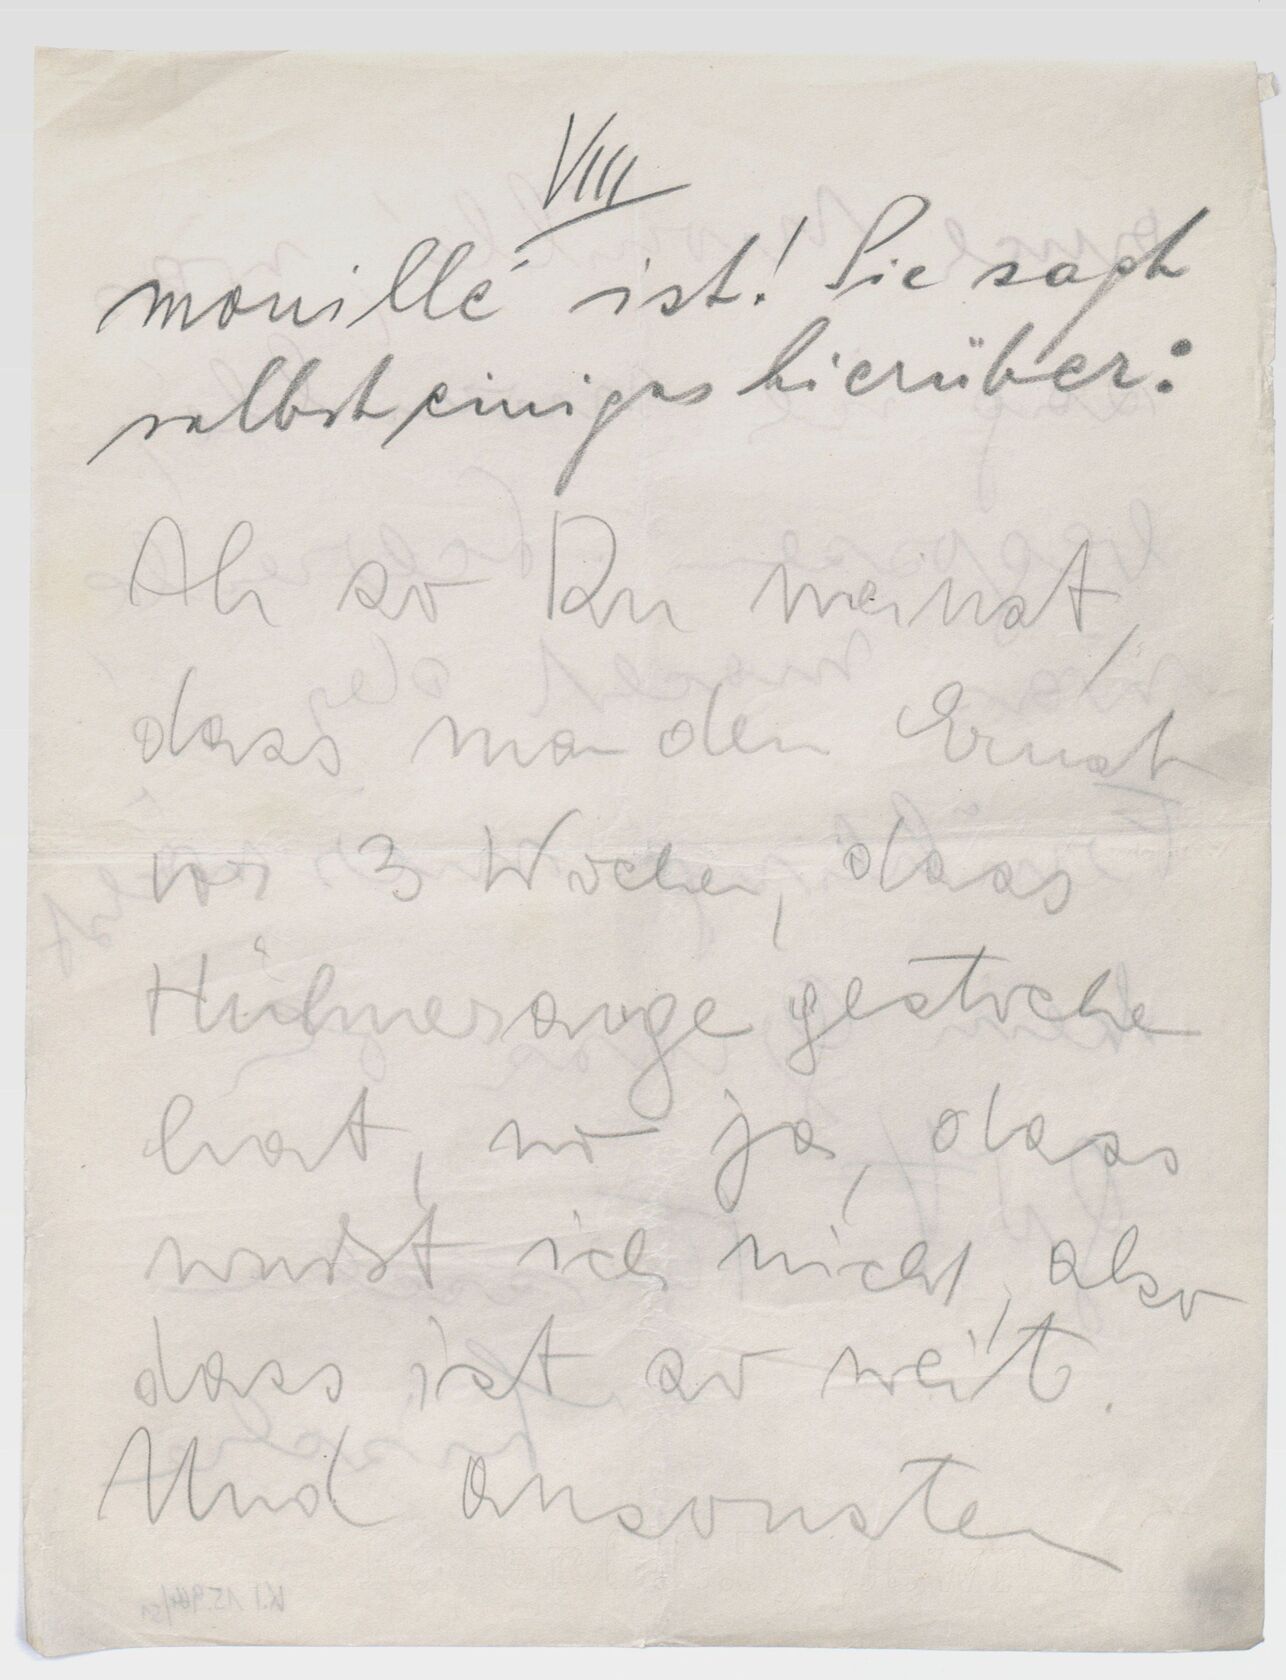 VIII
mouillé ist! Sie sagt
selbst einiges hierüber:
Ah so Du meinst,
dass ma den Ernst
vor 3 Woche, dass
Hühnerauge gestoche
hat, no ja, dass
wusst ich nicht, also
dass ist so weit.
Und ansonsten